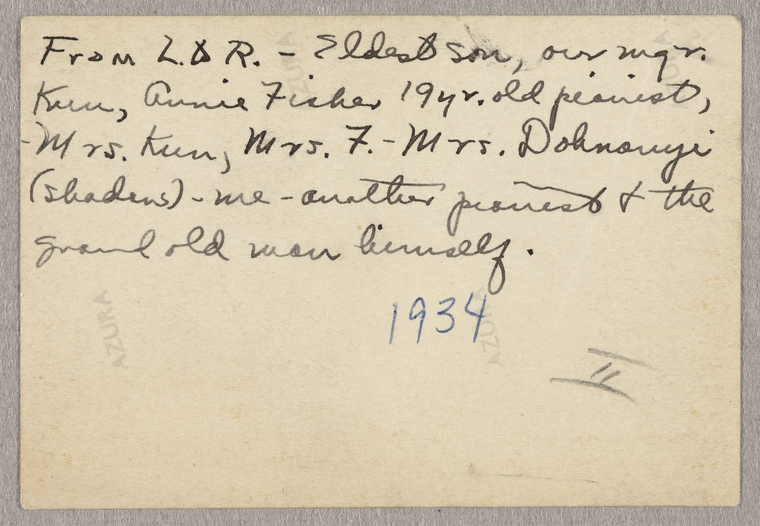 From L. to R. - Eldest son, our mgr.
Kun, Annie Fisher 19 yr. old pianist,
-Mrs. Kun, Mrs. F. - Mrs. Dohnanyi
(shadows) - me - another pianist & the
grand old man himself.
1934
AZURA
AZURA
AZURA
AZURA
II